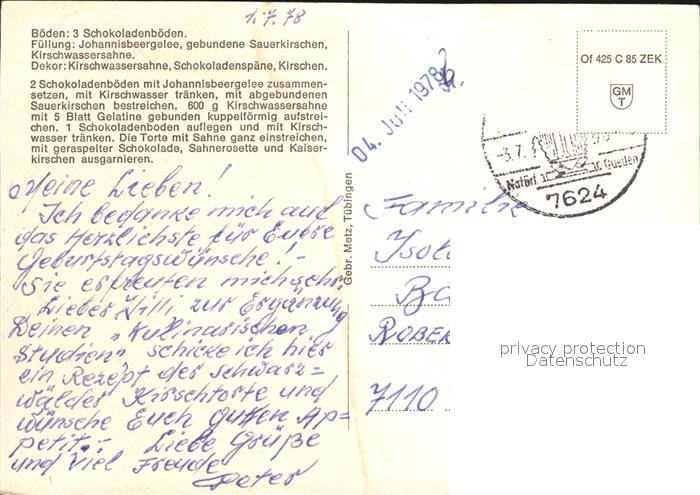 1.7.78
Böden: 3 Schokoladenböden.
Füllung: Johannisbeergelee, gebundene Sauerkirschen,
Kirschwassersahne.
Dekor: Kirschwassersahne, Schokoladenspäne, Kirschen.
2 Schokoladenböden mit Johannisbeergelee zusammen-
setzen, mit Kirschwasser tränken, mit abgebundenen
Sauerkirschen bestreichen. 600 g Kirschwassersahne
mit 5 Blatt Gelatine gebunden kuppelförmig aufstrei-
chen. 1 Schokoladenboden auflegen und mit Kirsch-
wasser tränken. Die Torte mit Sahne ganz einstreichen,
mit geraspelter Schokolade, Sahnerosette und Kaiser-
kirschen ausgarnieren.
Meine Lieben!
Ich bedanke mich auf
das Herzlichste für Eure
Geburtstagswünsche! -
Sie erfreuten mich sehr.
Lieber Willi, zur Ergänzung
Deinen „Kulinarischen
Studien" schicke ich hier
ein Rezept der schwarz=
wälder Kirschtorte und
wünsche Euch guten Ap=
petit. - Liebe Grüße
und viel Freude
Peter
Gebr. Metz, Tübingen
04. Juli 1978
Of 425 C 85 ZEK
GM
T
-3.7.
Quellen
7624
Familie
Isol
Ba
ROBER
7110
privacy protection
Datenschutz